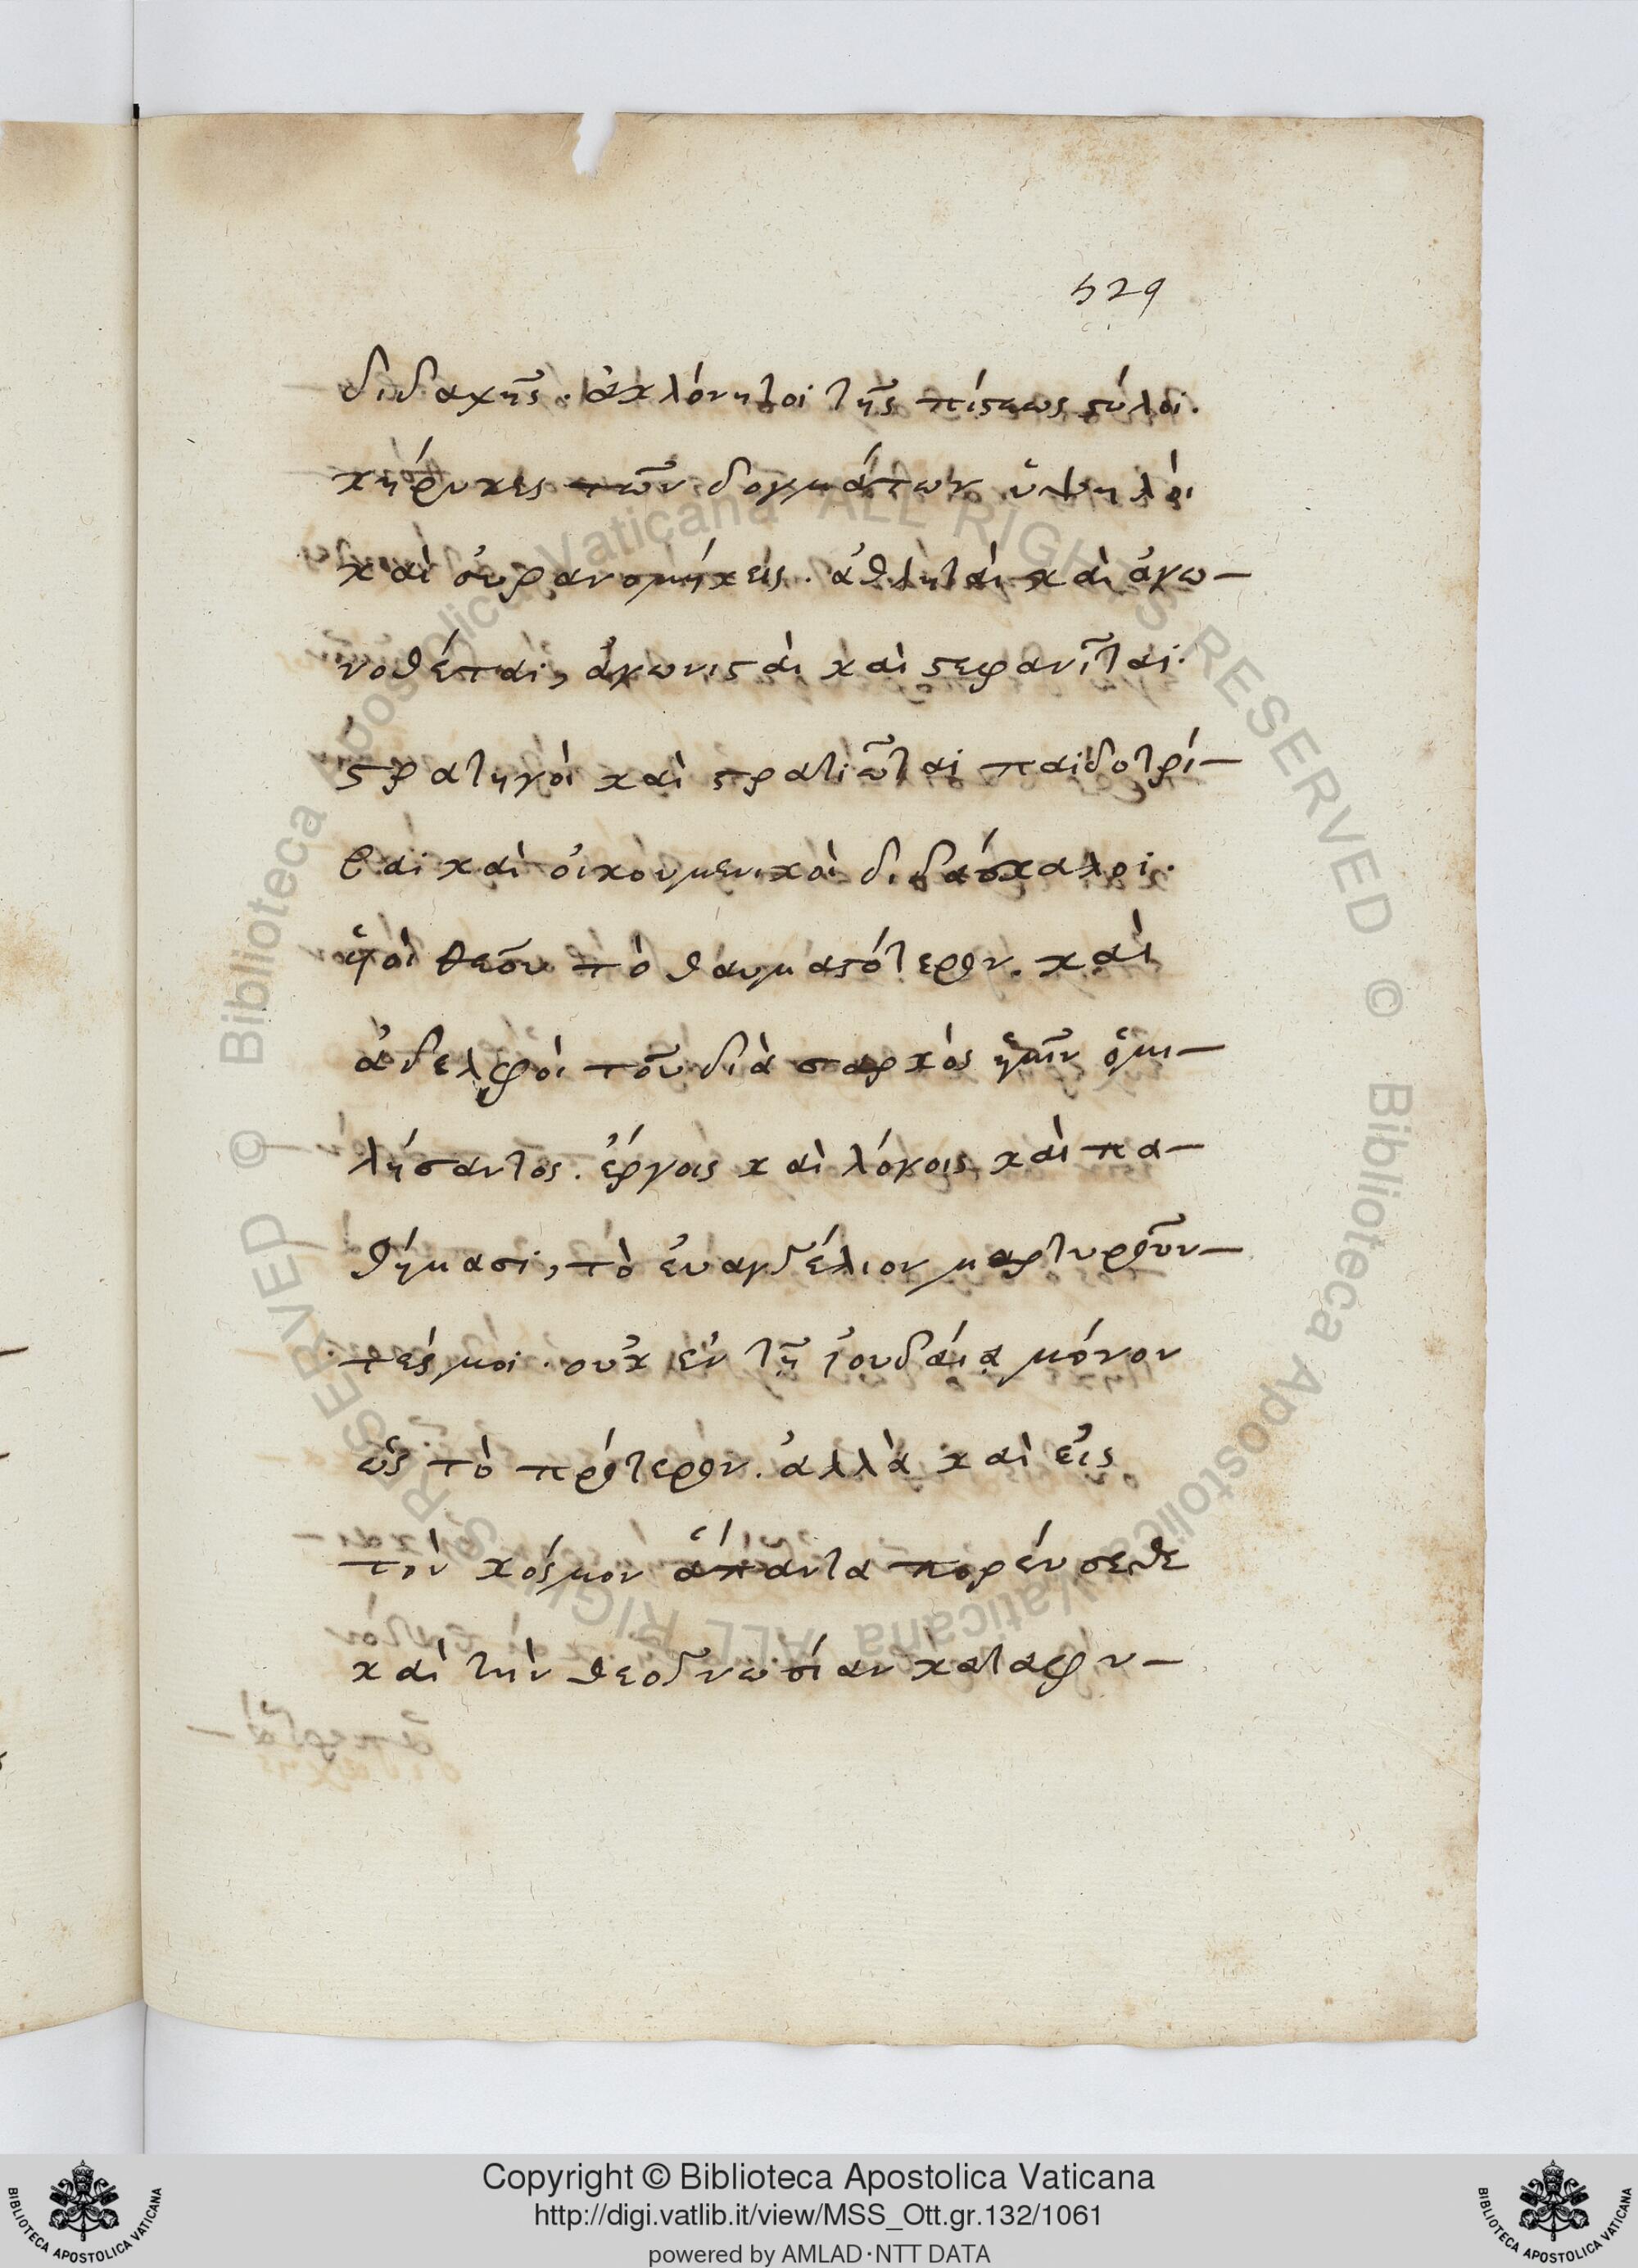 529
διδαχῆς. ἀκλόνητοι τῆς πίστεως στύλοι.
κήρυκες τῶν δογμάτων ὑψηλοὶ
καὶ οὐρανομήκεις. ἀθληταὶ καὶ ἀγω-
νοθέται, ἀγωνισταὶ καὶ στεφανῖται.
στρατηγοὶ καὶ στρατιῶται παιδοτρί-
βαι καὶ οἰκουμενικοὶ διδάσκαλοι.
θεοῦ τὸ θαυμαστότερον. καὶ
ἀδελφοὶ τοῦ διὰ σαρκὸς ἡμῖν ὁμι-
λήσαντος. ἔργοις καὶ λόγοις καὶ πα-
θήμασι, τὸ εὐαγγέλιον μαρτυροῦν-
τές μοι. οὐκ ἐν τῇ ἰουδαίᾳ μόνον
ὡς τὸ πρότερον. ἀλλὰ καὶ εἰς
τὸν κόσμον ἅπαντα πορεύσεσθε
καὶ τὴν θεογνωσίαν καταφυ-
© Biblioteca Apostolica Vaticana ALL RIGHTS RESERVED
© Biblioteca Apostolica Vaticana ALL RIGHTS RESERVED
Copyright © Biblioteca Apostolica Vaticana
http://digi.vatlib.it/view/MSS_Ott.gr.132/1061
powered by AMLAD·NTT DATA
BIBLIOTECA APOSTOLICA VATICANA
BIBLIOTECA APOSTOLICA VATICANA